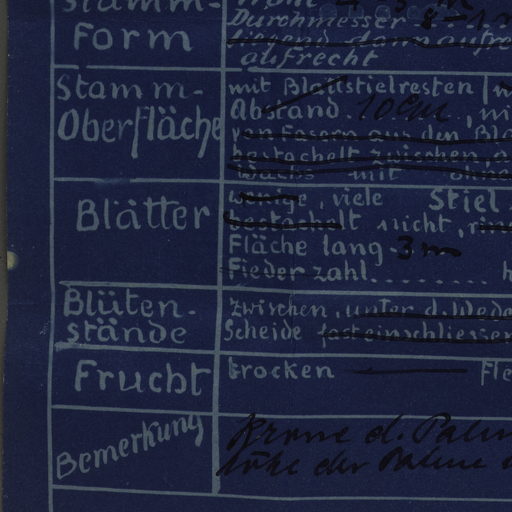 Stamm-
Form
Durchmesser 8-1
liegend dann aufre
aufrecht
Stamm-
Oberfläche
mit Blattstielresten
Abstand. 10 cm, ni
von Fasern aus den Bla
bestachelt zwischen, a
Wachs mit ohne
Blätter
wenige, viele Stiel
bestachelt nicht, rin
Fläche lang 3 m
Fiederzahl.........
Blüten-
stände
zwischen, unter d. Wede
Scheide fast einschliessen
Frucht
trocken Fle
Bemerkung
Krone d. Palm
höhe der Palme